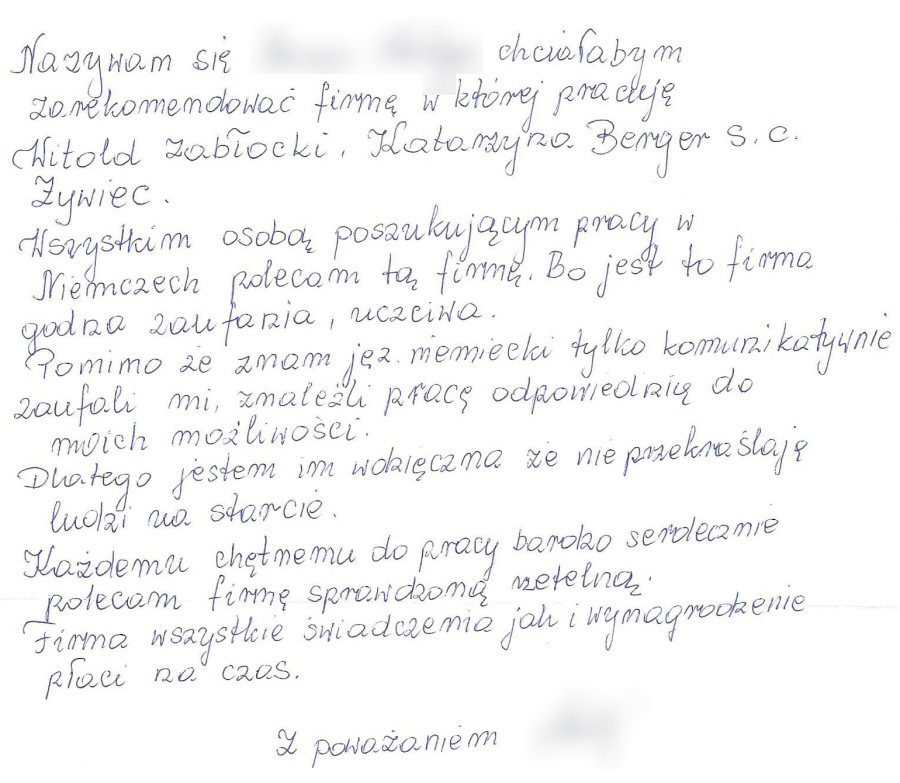 Nazywam się chciałabym
zarekomendować firmę w której pracuję
Witold Zabłocki, Katarzyna Berger s.c.
Żywiec.
Wszystkim osobą poszukującym pracy w
Niemczech polecam tą firmę. Bo jest to firma
godna zaufania, uczciwa.
Pomimo że znam jęz. niemiecki tylko komunikatywnie
zaufali mi, znaleźli pracę odpowiednią do
moich możliwości.
Dlatego jestem im wdzięczna że nie przekraślają
ludzi na starcie.
Każdemu chętnemu do pracy bardzo serdecznie
polecam firmę sprawdzoną rzetelną.
Firma wszystkie świadczenia jak i wynagrodzenie
płaci na czas.
Z poważaniem